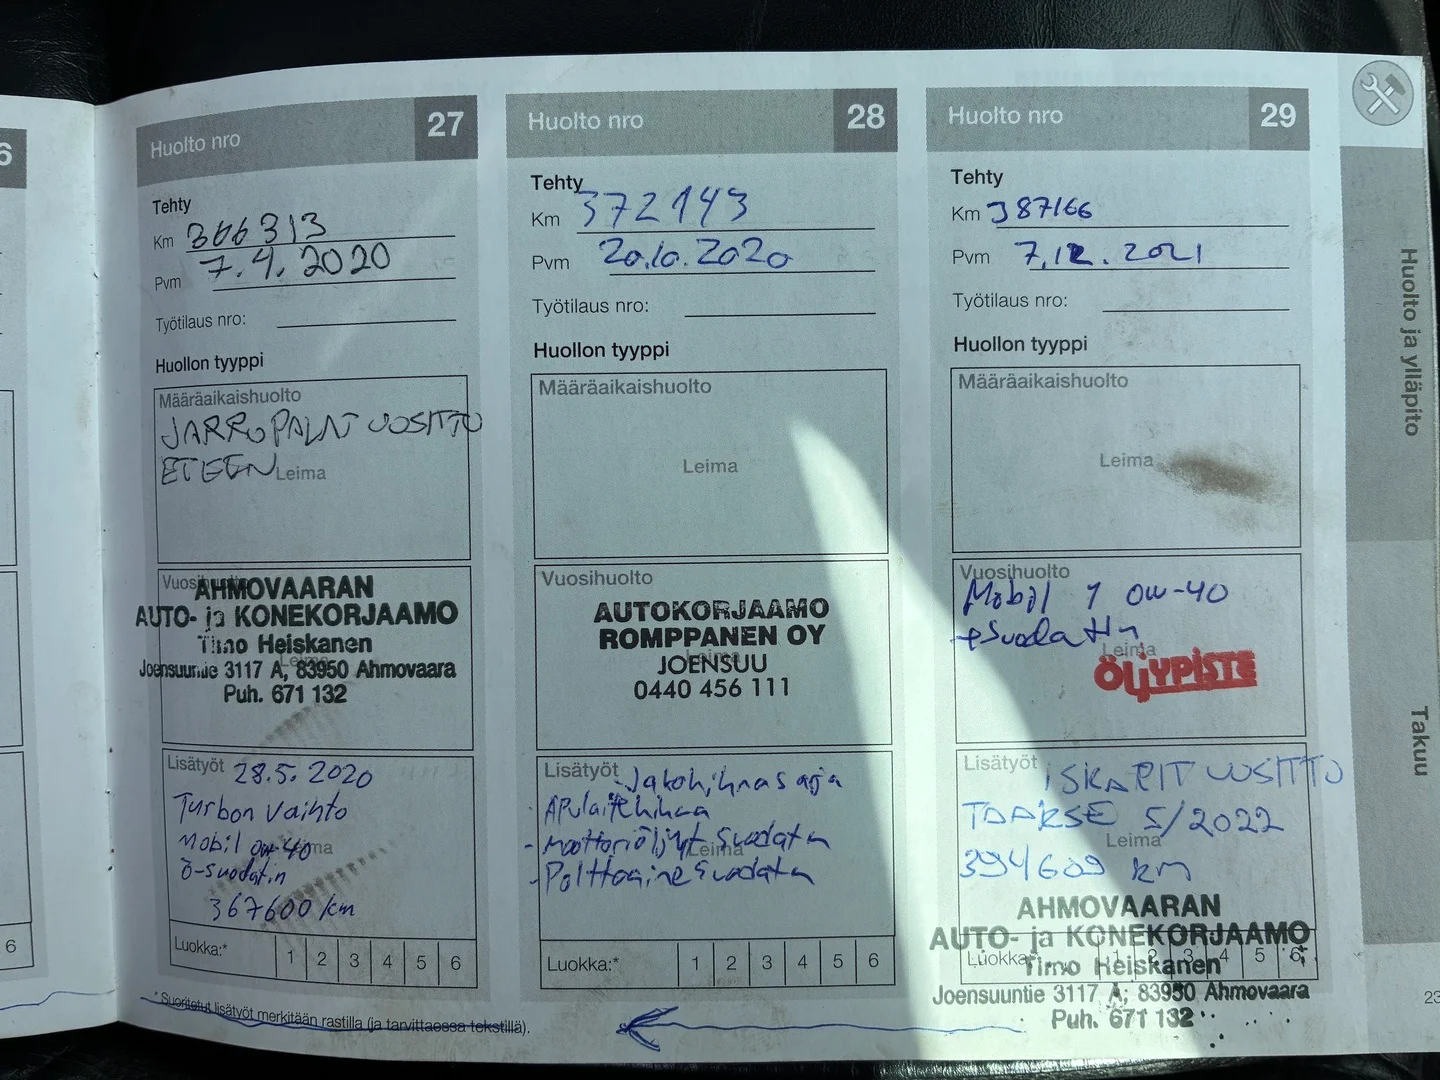 6
6
Huolto nro 27
Tehty
Km 366313
Pvm 7.4.2020
Työtilaus nro:
Huollon tyyppi
Määräaikaishuolto
JARRUPALAT UUSITTU
ETEEN
Leima
Vuosihuolto
AHMOVAARAN
AUTO- ja KONEKORJAAMO
Timo Heiskanen
Leima
Joensuuntie 3117 A, 83950 Ahmovaara
Puh. 671 132
Lisätyöt 28.5.2020
Turbon vaihto
Mobil 0w-40
Leima
Ö-suodatin
367600 km
Luokka:* 1 2 3 4 5 6
* Suoritetut lisätyöt merkitään rastilla (ja tarvittaessa tekstillä).
Huolto nro 28
Tehty
Km 372143
Pvm 20.10.2020
Työtilaus nro:
Huollon tyyppi
Määräaikaishuolto
Leima
Vuosihuolto
AUTOKORJAAMO
ROMPPANEN OY
Leima
JOENSUU
0440 456 111
Lisätyöt Jakohihnasarja
Apulaitehihna
- Moottoriöljyt Suodatin
Leima
- Polttoainesuodatin
Luokka:* 1 2 3 4 5 6
Huolto nro 29
Tehty
Km 387166
Pvm 7.12.2021
Työtilaus nro:
Huollon tyyppi
Määräaikaishuolto
Leima
Vuosihuolto
Mobil 1 0w-40
+Suodatin
Leima
ÖLJYPISTE
Lisätyöt ISKARIT UUSITTU
TAAKSE 5/2022
Leima
394609 km
AHMOVAARAN
AUTO- ja KONEKORJAAMO
Luokka:* 1 2 3 4 5 6
Timo Heiskanen
Joensuuntie 3117 A; 83950 Ahmovaara
Puh. 671 132
Huolto ja ylläpito
Takuu
23